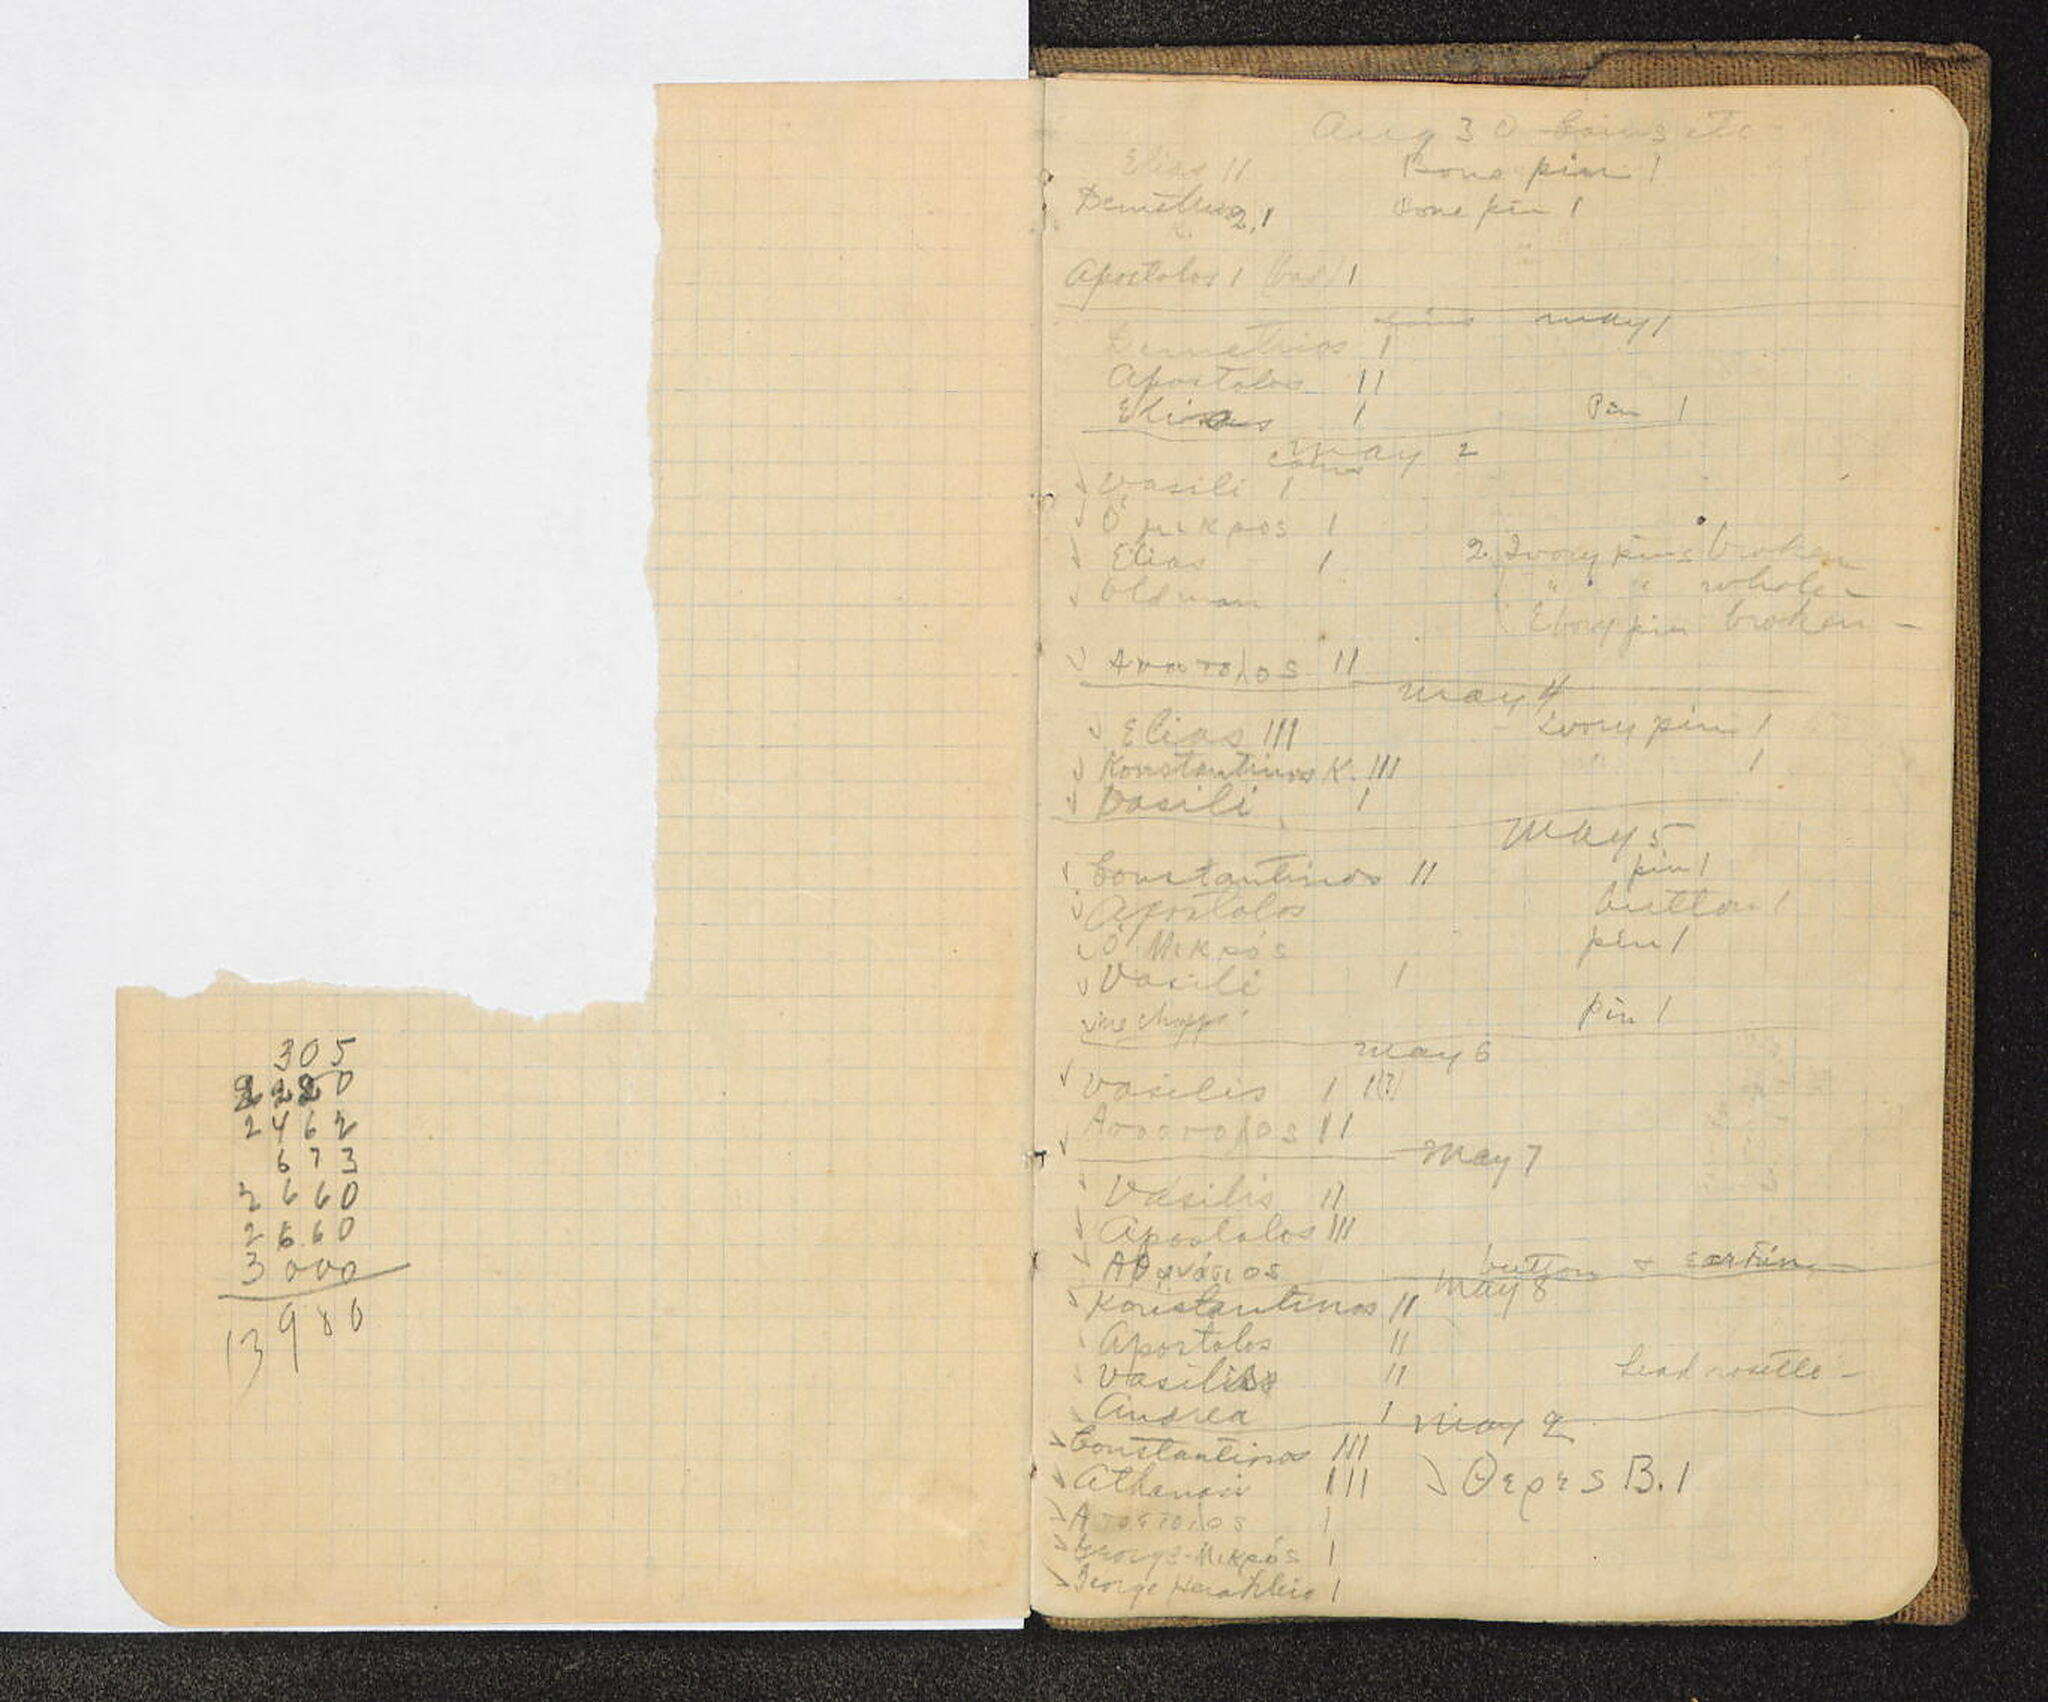 305
2220
2462
673
2660
2660
3000
13980
Aug 30 Coins etc
Elias II Bone pin 1
Demetrius 2, 1 bone pin 1
Apostolos 1 (bad) 1
Coins May 1
Demetrios I
Apostolos II
Elias I Pin 1
May 2
Coins
Vasili I
Ὁ μικρος I
Elias I 2 Ivory pins broken
Old man " " whole
Ebony pin broken
Αποστολος II
May 4
Elias III Ivory pin 1
Konstantinos K. III " 1
Vasili I
May 5
Constantinos II pin 1
Apostolos button 1
Ὁ Μικρός pin 1
Vasili I
Pin 1
May 6
Vasilis I I(?)
Αποστολος II
May 7
Vasilis II
Apostolos III
Αθανάσιος button &
May 8
Konstantinos II
Apostolos II
Vasilis II Lead rosette
Andrea I
May 9
Constantinos III
Athanasi III B. 1
Αποστολος I
George-Μικρός I
George I